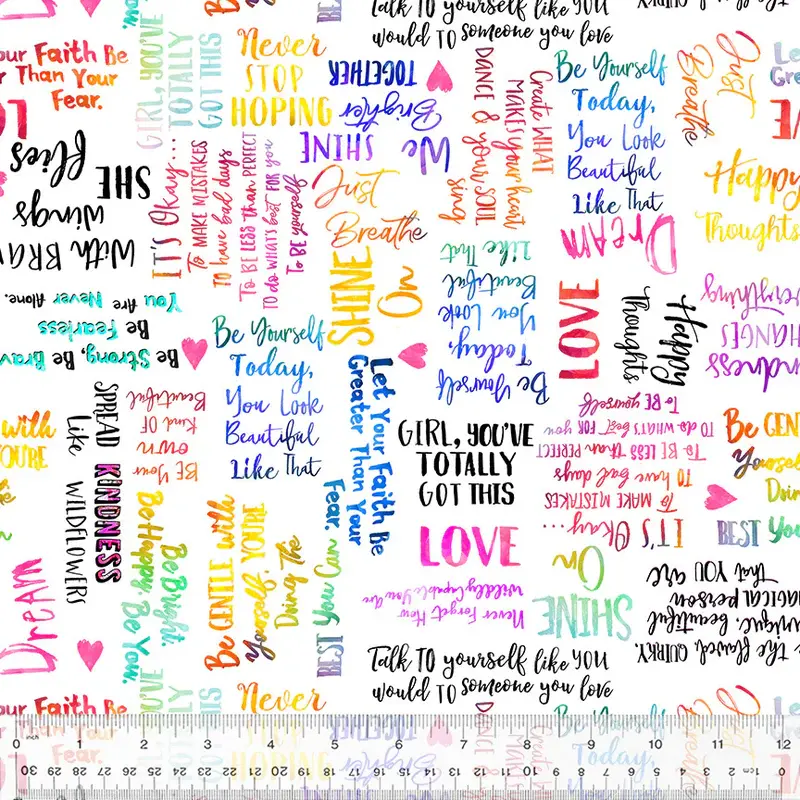 Talk TO yourself like YOU
would TO someone you love
Your Faith Be
Than Your
Fear.
LOVE
GIRL, YOU'VE
TOTALLY
GOT THIS
Never
STOP
HOPING
We SHINE
Brighter
TOGETHER
Create WHAT
MAKES your heart
sing
DANCE & your SOUL
Be Yourself
Today,
You Look
Beautiful
Like That
Just
Breathe
Happy
Thoughts
SHE
flies
With
wings
IT'S Okay...
To MAKE MISTAKES
To have bad days
To BE LESS than PERFECT
TO do WHAT'S best FOR you
To BE yourself
Just
Breathe
DREAM
SHINE
On
Be Strong, Be Brave
Be Fearless
You Are Never Alone.
Be Yourself
Today,
You Look
Beautiful
Like That
Be Yourself
Today,
You Look
Beautiful
Like That
LOVE
Happy
Thoughts
Kindness
CHANGES
Everything
SPREAD KINDNESS
Like WILDFLOWERS
BE Your
own
KIND OF
Beautiful
Let Your Faith Be
Greater Than Your
Fear.
GIRL, YOU'VE
TOTALLY
GOT THIS
IT'S Okay...
To MAKE MISTAKES
To have bad days
To BE LESS than PERFECT
TO do WHAT'S best FOR you
To BE yourself
Be GENTLE
Yourself
Doing
BEST You
with
YOU'RE
the
DREAM
Be Bright.
Be Happy. Be You.
Be GENTLE with
Yourself, YOU'RE
Doing The
BEST You Can
LOVE
Never Forget How
Wildly Capable You Are
SHINE
On
the flawed, QUIRKY,
unique, beautiful,
MAGICAL person
That YOU are
Talk TO yourself like YOU
would TO someone you love
Your Faith Be
Than Your
Fear.
YOU'VE
TOTALLY
GOT THIS
Never
STOP
HOPING
Brighter
TOGETHER
Be Yourself
Today,
You Look
Beautiful
Just
Breathe
0 inch 1 2 3 4 5 6 7 8 9 10 11 12
30 29 28 27 26 25 24 23 22 21 20 19 18 17 16 15 14 13 12 11 10 9 8 7 6 5 4 3 2 1 cm 0